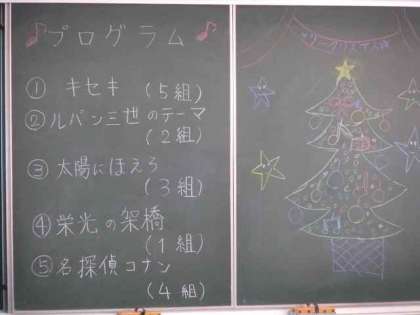 プログラム
① キセキ
(5組)
② ルパン三世のテーマ
(2組)
③ 太陽にほえろ
(3組)
④ 栄光の架橋
(1組)
⑤ 名探偵コナン
(4組)